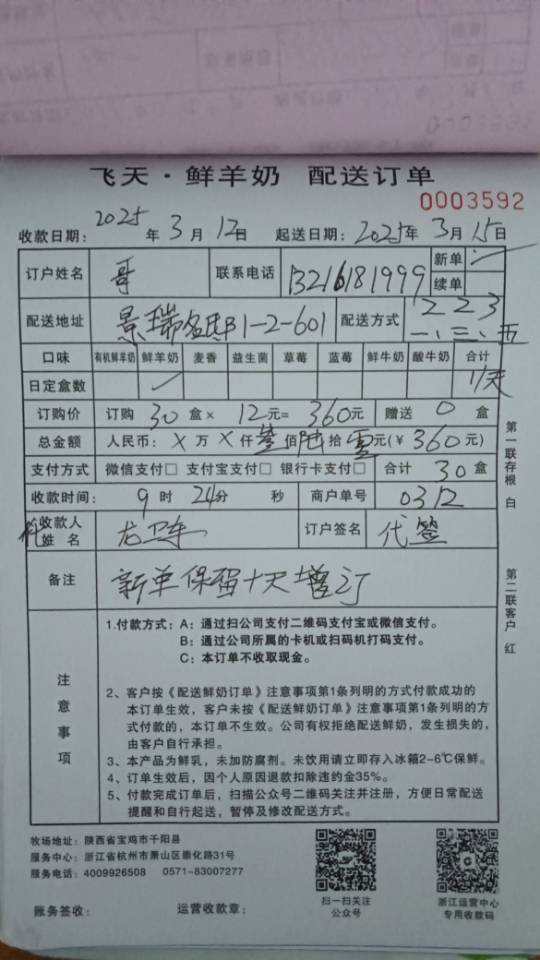 飞天·鲜羊奶 配送订单
0003592
收款日期: 2025年3月12日 起送日期: 2025年3月15日
订户姓名 哥 联系电话 13216181999 新单 ✓
续单
配送地址 景瑞名邸1-2-601 配送方式 2 2 3
一、三、五
口味 有机鲜羊奶 鲜羊奶 麦香 益生菌 草莓 蓝莓 鲜牛奶 酸牛奶 合计
日定盒数 ✓ 1/天
订购价 订购 30 盒× 12元= 360元 赠送 0 盒
总金额 人民币: ×万×仟叁佰陆拾零元(¥360元)
支付方式 微信支付□ 支付宝支付□ 银行卡支付□ 合计 30盒
收款时间: 9时 24分 秒 商户单号 0312
代收款人
姓 名 订户签名 代签
备注 新单保留十天增订
注意事项
1.付款方式: A: 通过扫公司支付二维码支付宝或微信支付。
B: 通过公司所属的卡机或扫码机打码支付。
C: 本订单不收取现金。
2、客户按《配送鲜奶订单》注意事项第1条列明的方式付款成功的
本订单生效,客户未按《配送鲜奶订单》注意事项第1条列明的方
式付款的,本订单不生效。公司有权拒绝配送鲜奶,发生损失的,
由客户自行承担。
3、本产品为鲜乳,未加防腐剂。未饮用请立即存入冰箱2-6℃保鲜。
4、订单生效后,因个人原因退款扣除违约金35%。
5、付款完成订单后,扫描公众号二维码关注并注册,方便日常配送
提醒和自行起送,暂停及修改配送方式。
第一联存根 白
第二联客户 红
牧场地址: 陕西省宝鸡市千阳县
服务中心: 浙江省杭州市萧山区崇化路31号
服务电话: 4009926508 0571-83007277
账务签收: 运营收款章:
扫一扫关注
公众号
浙江运营中心
专用收款码